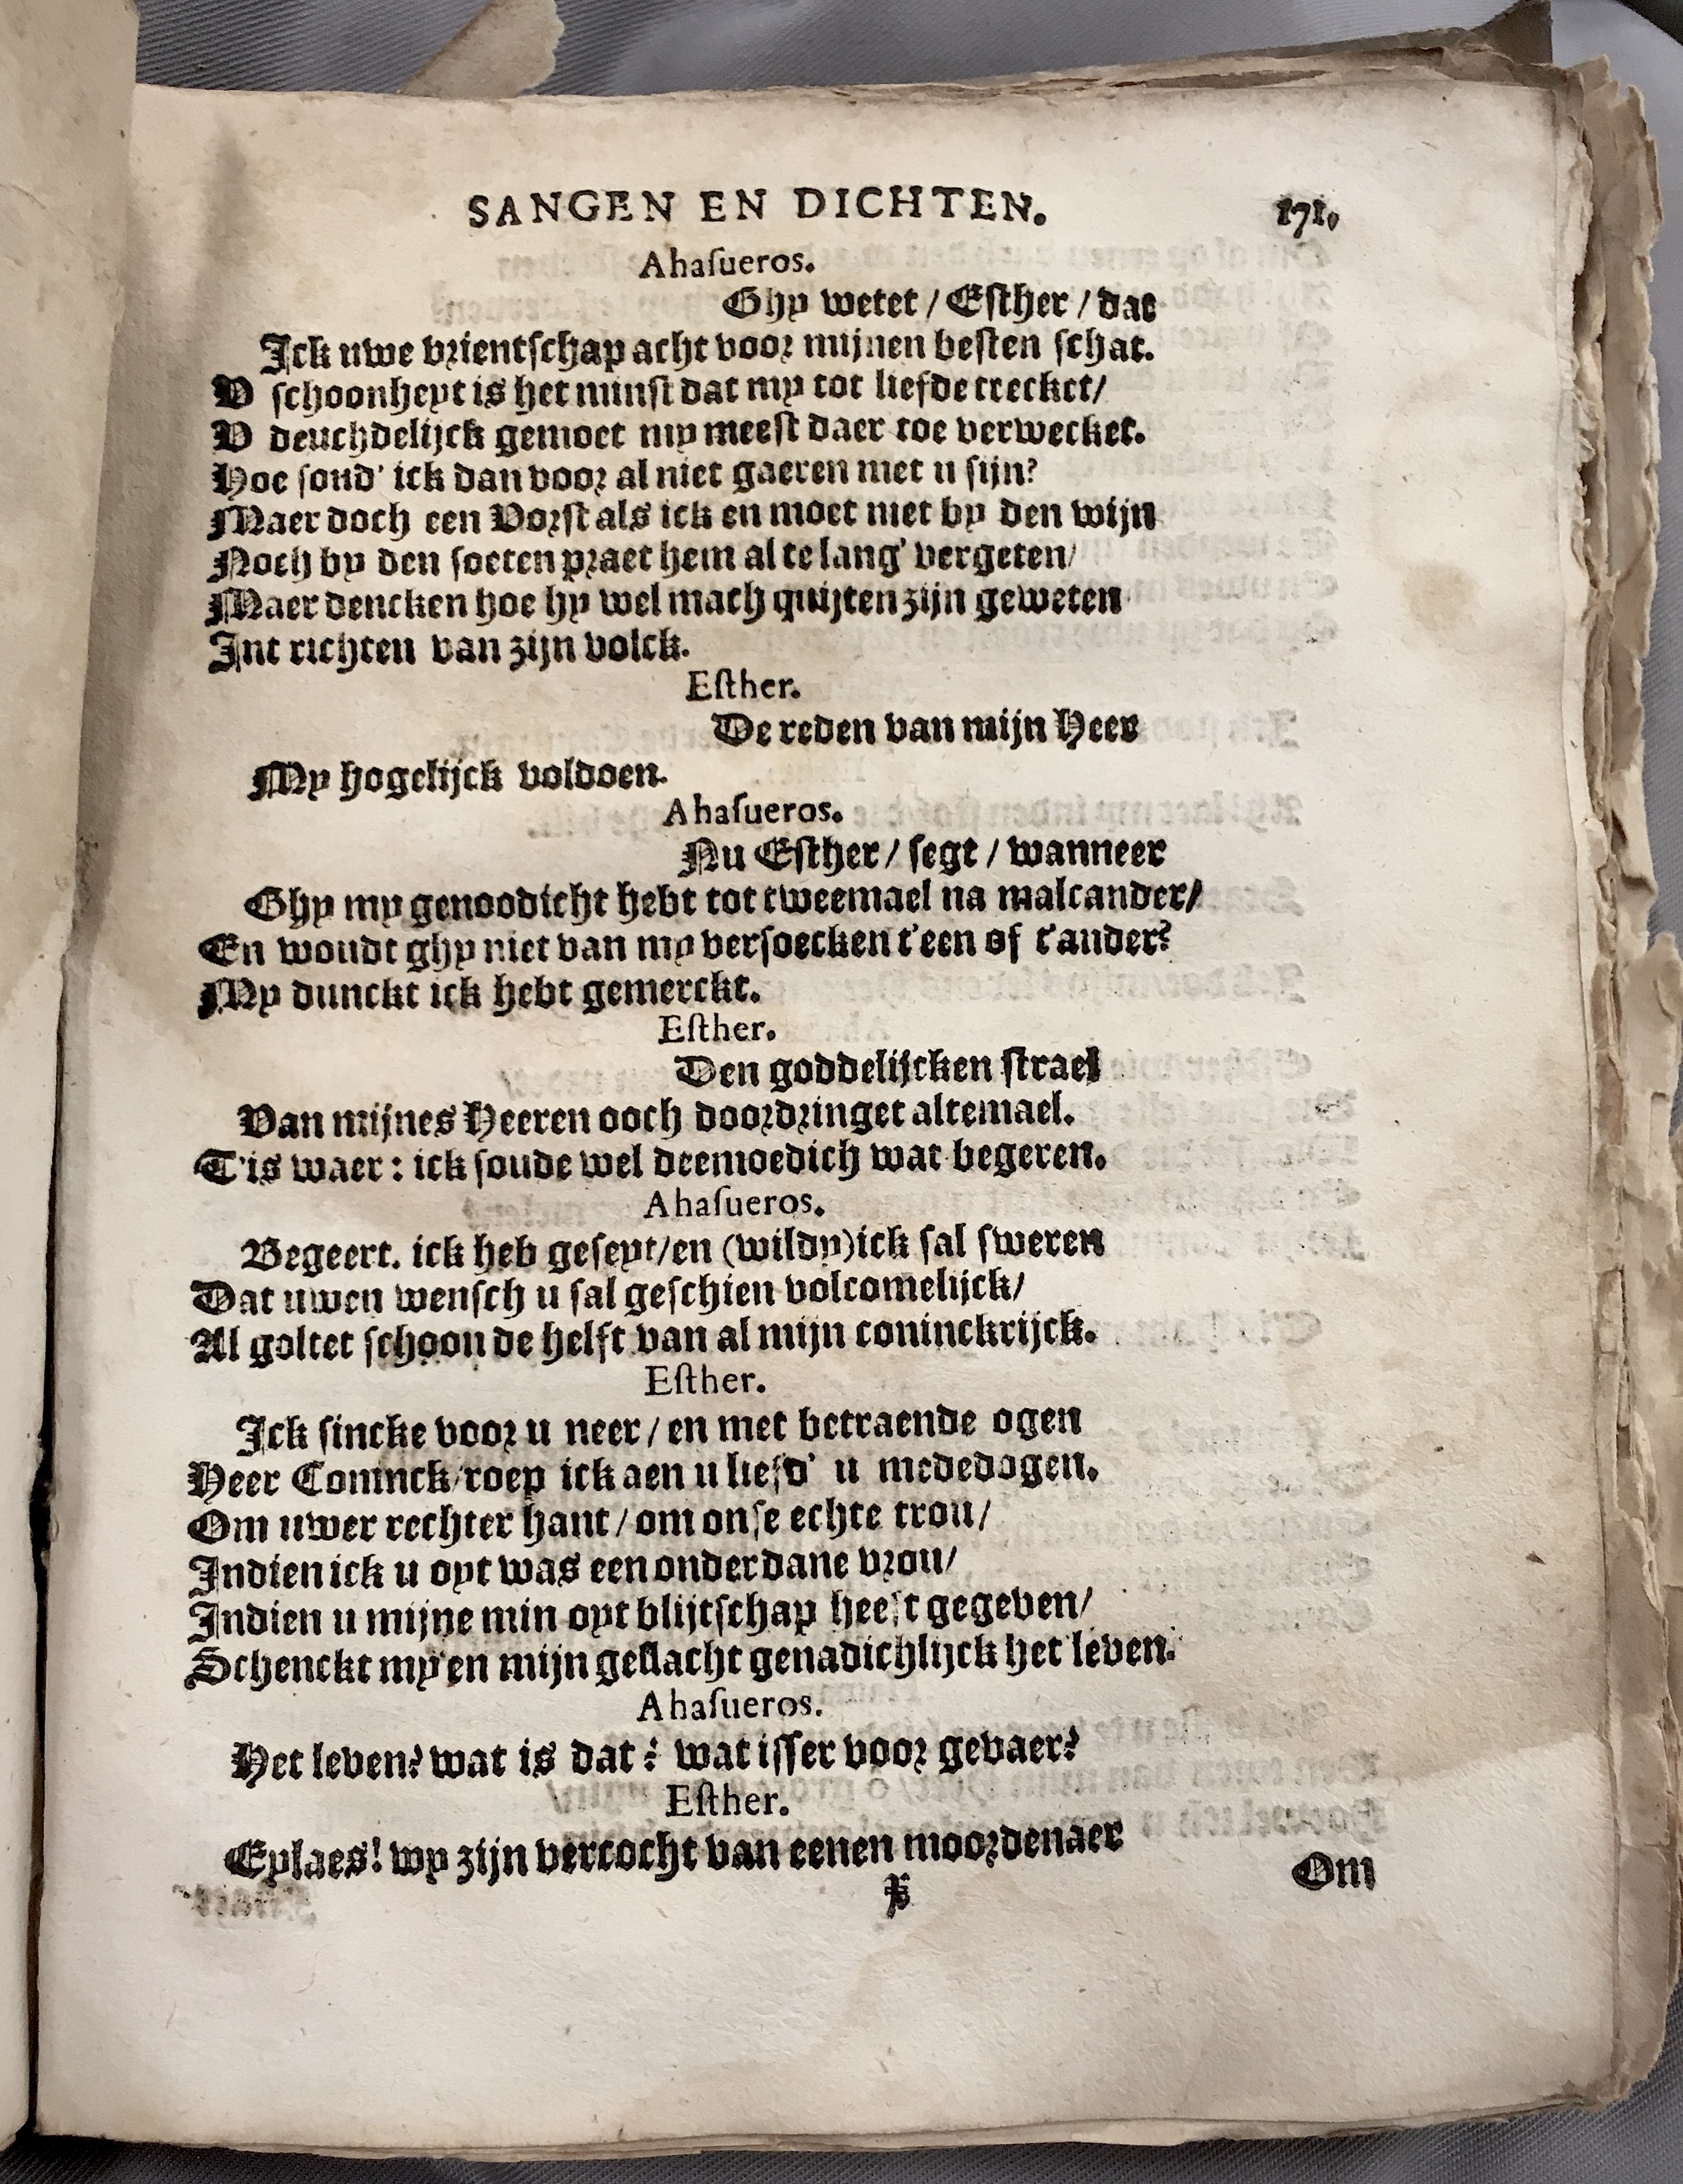 SANGEN EN DICHTEN. 171.
Ahaſueros.
Ghy wetet / Eſther / dat
Ick uwe vrientſchap acht voor mijnen beſten ſchat.
V ſchoonheyt is het minſt dat my tot liefde trecket/
V deuchdelijck gemoet my meeſt daer toe verwecket.
Hoe ſoud' ick dan voor al niet gaeren met u ſijn?
Maer doch een Vorſt als ick en moet niet by den wijn
Noch by den ſoeten praet hem al te lang' vergeten/
Maer dencken hoe hy wel mach quijten zijn geweten
Int richten van zijn volck.
Eſther.
De reden van mijn Heer
My hogelijck voldoen.
Ahaſueros.
Nu Eſther / ſegt / wanneer
Ghy my genoodicht hebt tot tweemael na malcander/
En woudt ghy niet van my verſoecken t'een of t'ander?
My dunckt ick hebt gemerckt.
Eſther.
Den goddelijcken ſtrael
Van mijnes Heeren ooch doordringet altemael.
T'is waer : ick ſoude wel deemoedich wat begeren.
Ahaſueros.
Begeert. ick heb geſeyt/en (wildy) ick ſal ſweren
Dat uwen wenſch u ſal geſchien volcomelijck/
Al goltet ſchoon de helft van al mijn coninckrijck.
Eſther.
Ick ſincke voor u neer / en met betraende ogen
Heer Coninck/roep ick aen u liefd' u mededogen.
Om uwer rechter hant / om onſe echte trou/
Indien ick u oyt was een onderdane vrou/
Indien u mijne min oyt blijtſchap heeft gegeven/
Schenckt my en mijn geſlacht genadichlijck het leven.
Ahaſueros.
Het leven? wat is dat? wat iſſer voor gevaer?
Eſther.
Eylaes! wy zijn vercocht van eenen moordenaer
Om